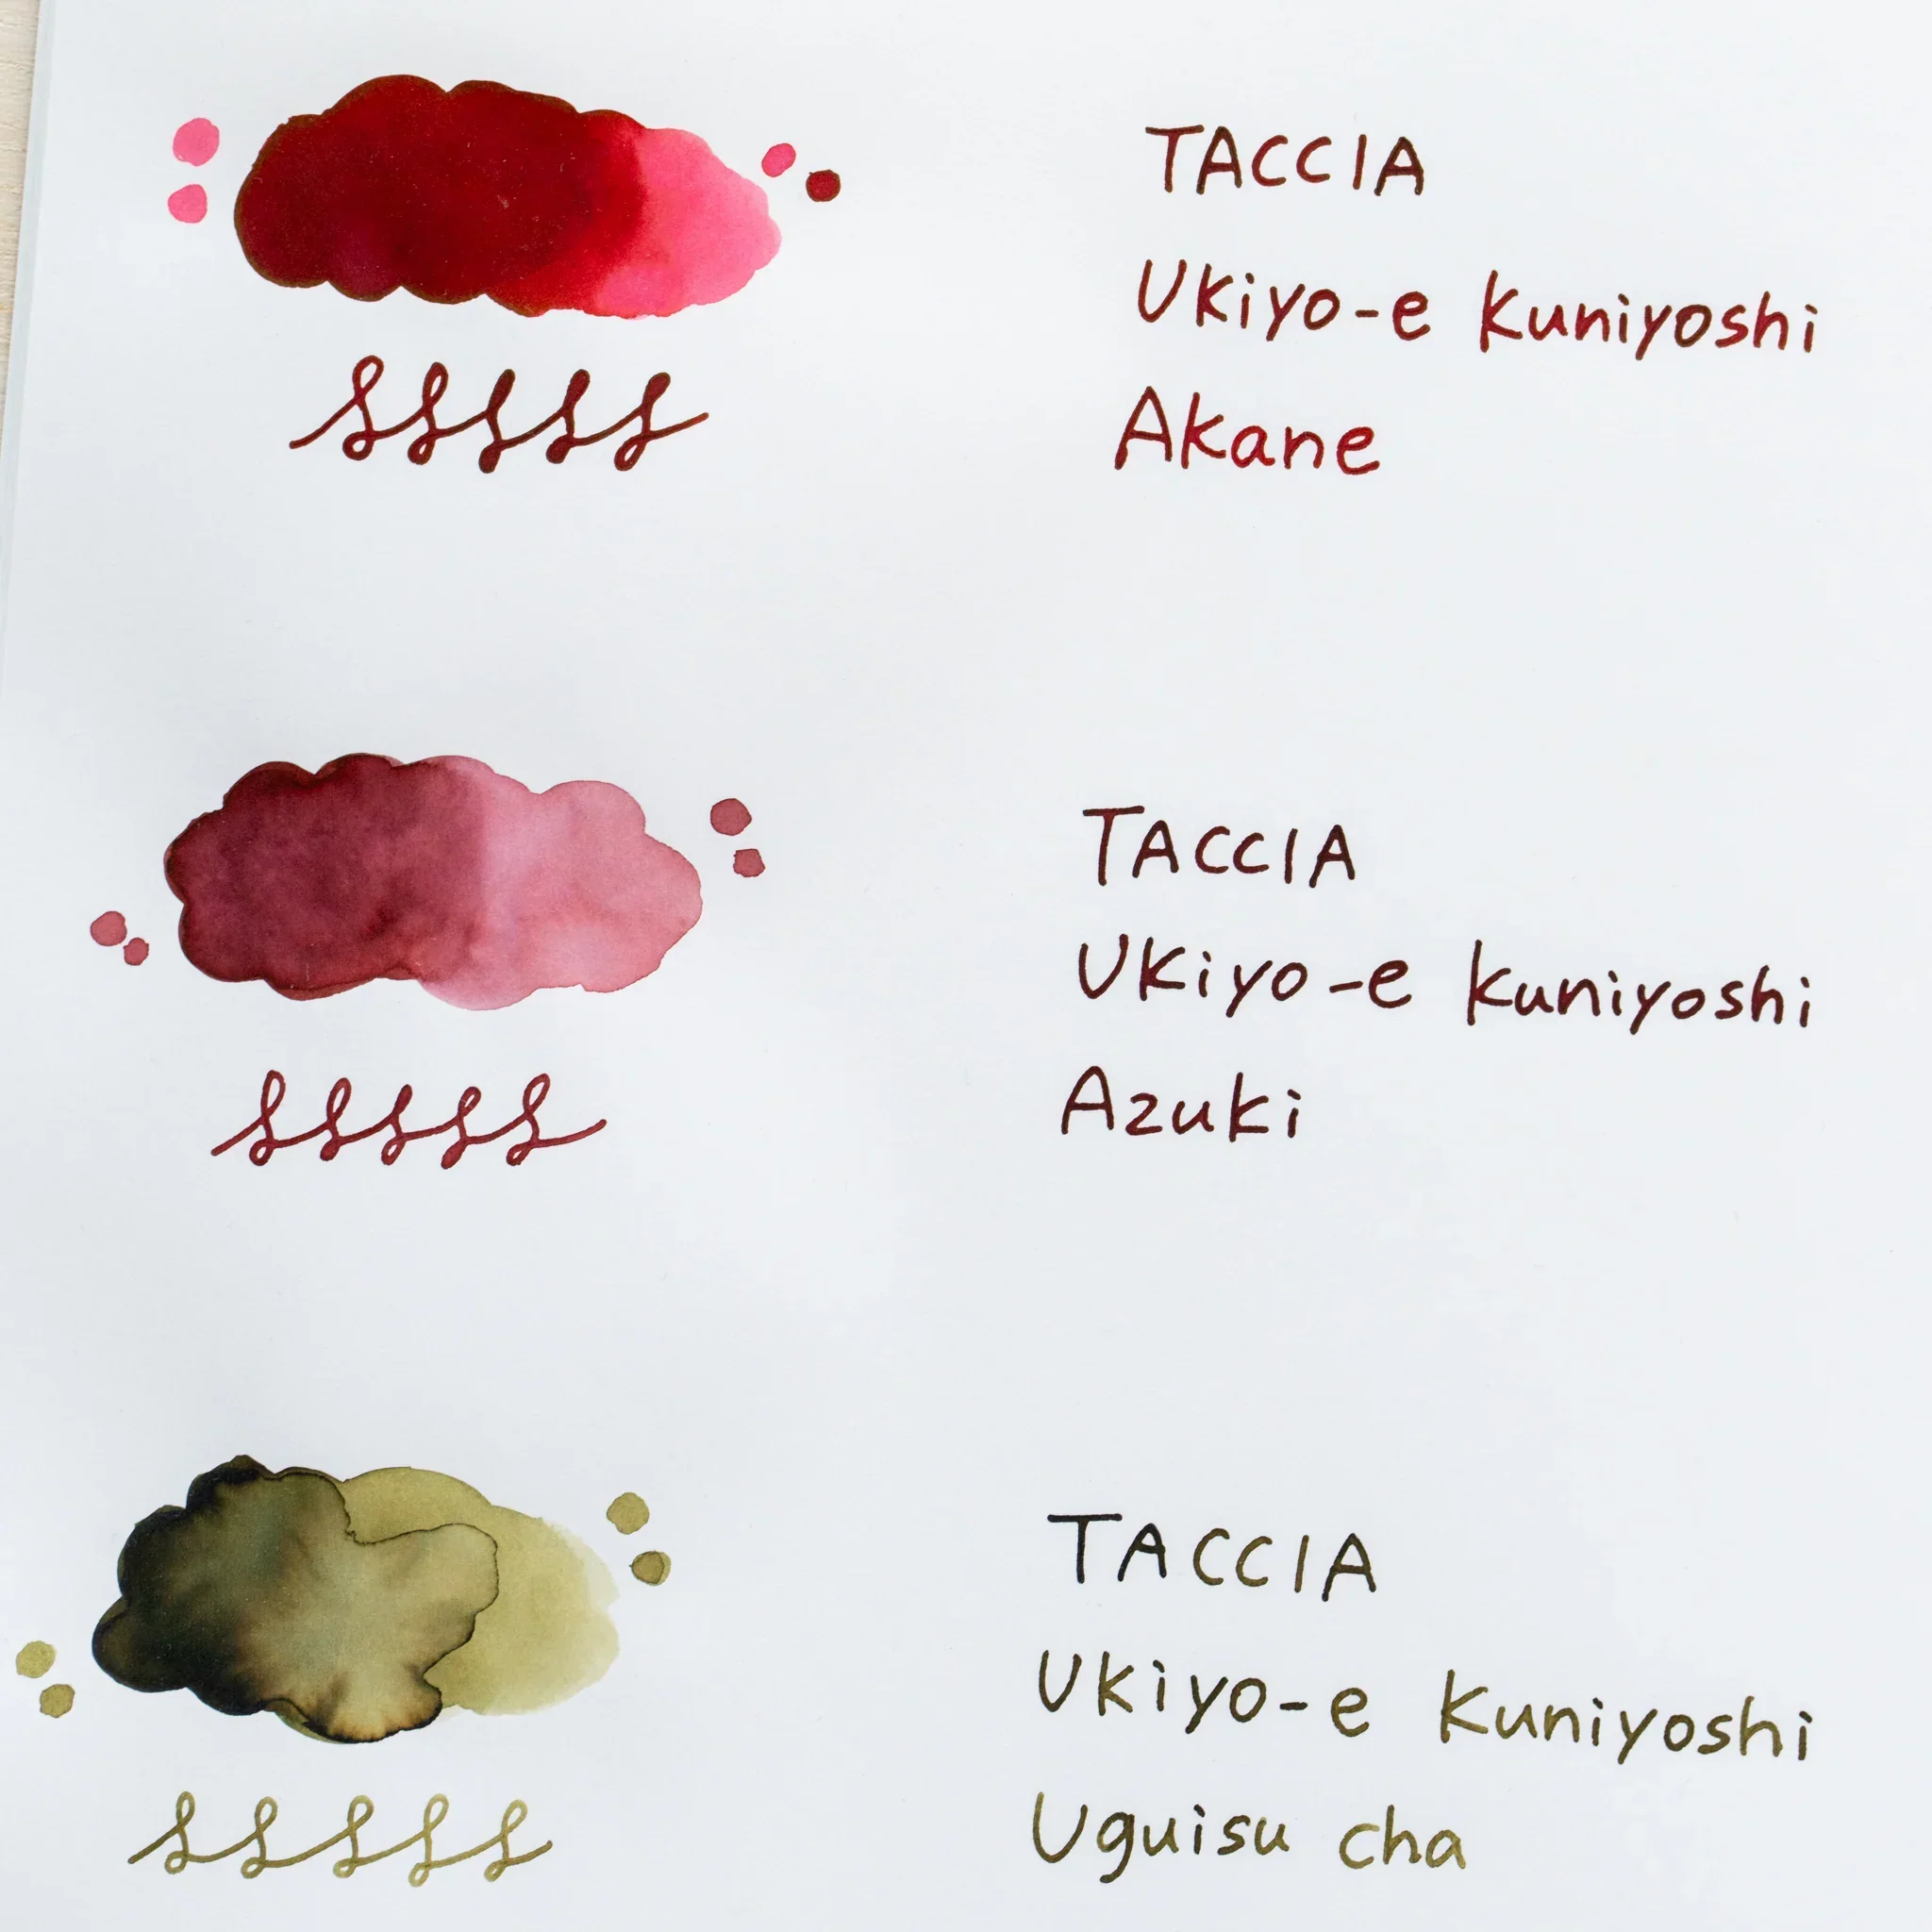 TACCIA
Ukiyo-e Kuniyoshi
Akane
TACCIA
Ukiyo-e Kuniyoshi
Azuki
TACCIA
Ukiyo-e Kuniyoshi
Uguisu cha